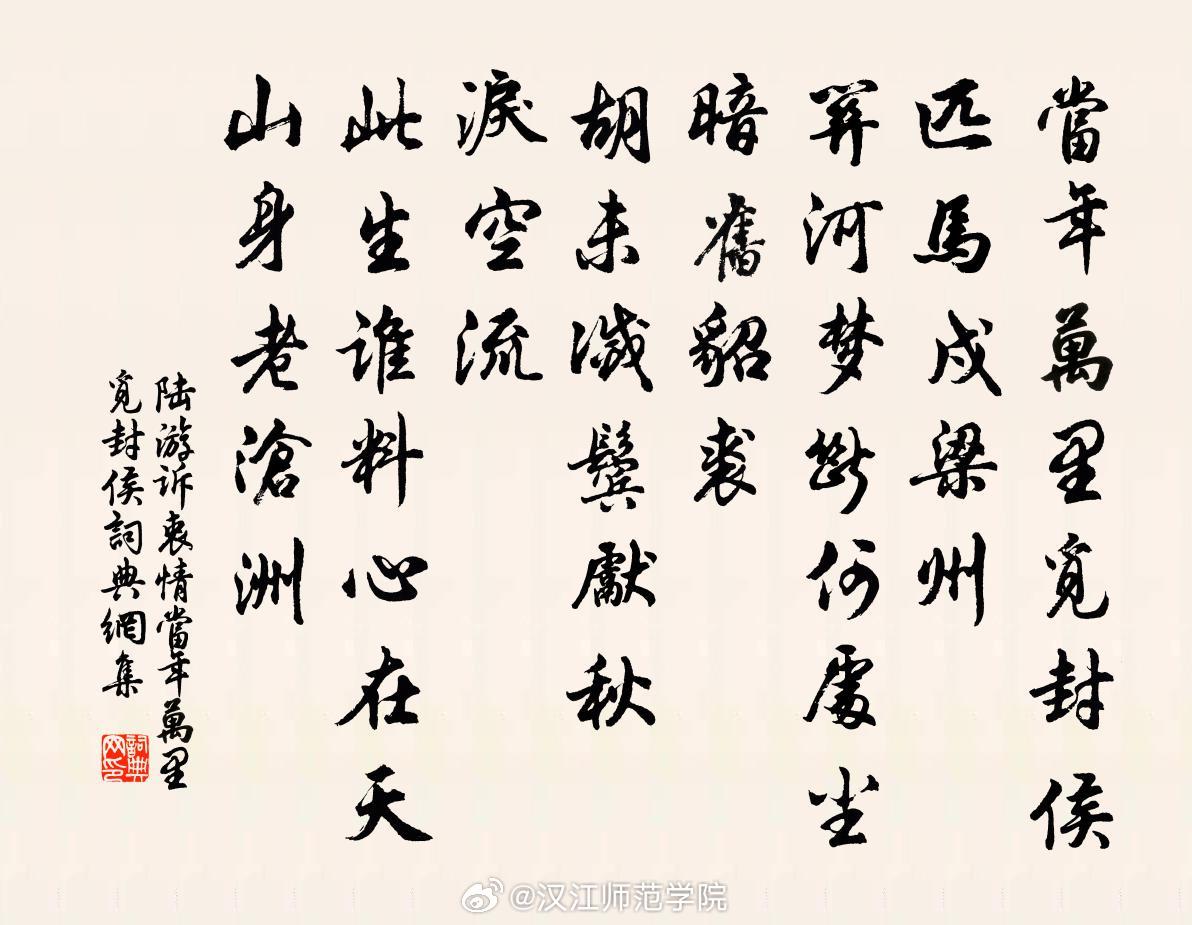 當年萬里覓封侯
匹馬戍梁州
關河梦斷何處塵
暗舊貂裘
胡未滅鬢獻秋
淚空流
此生谁料心在天
山身老滄洲
陆游诉衷情當年萬里
覓封侯詞典網集
詞典
网印
@汉江师范学院